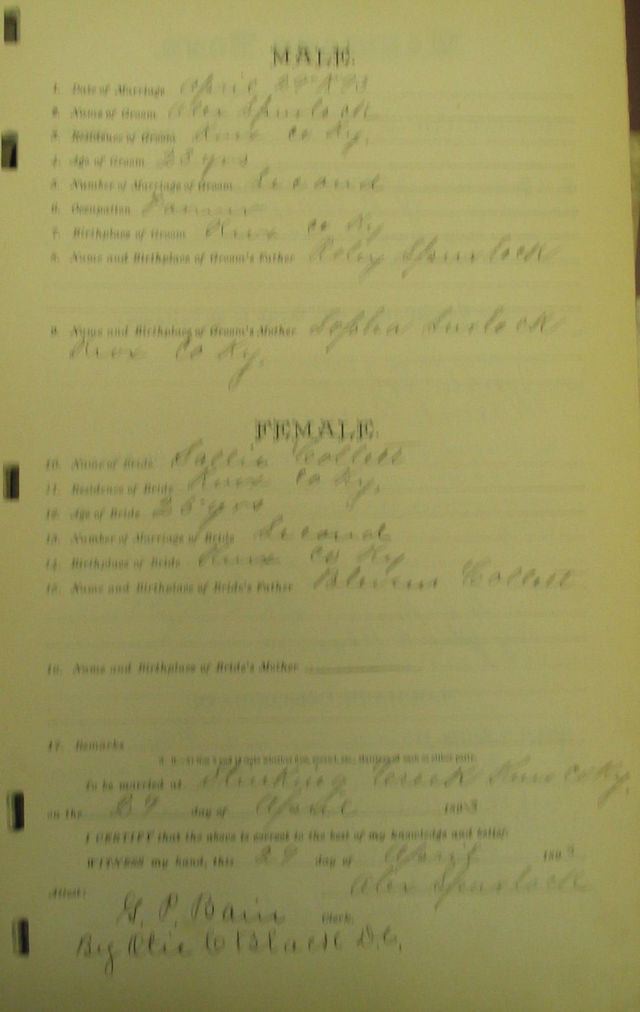 MALE.
1. Date of Marriage April 29 1893
2. Name of Groom Alex Spurlock
3. Residence of Groom Knox Co Ky.
4. Age of Groom 23 yrs
5. Number of Marriage of Groom Second
6. Occupation Farmer
7. Birthplace of Groom Knox Co Ky
8. Name and Birthplace of Groom's Father Roley Spurlock
9. Name and Birthplace of Groom's Mother Sophia Surlock
Knox Co Ky.
FEMALE.
10. Name of Bride Sallie Collett
11. Residence of Bride Knox Co Ky.
12. Age of Bride 26 yrs
13. Number of Marriage of Bride Second
14. Birthplace of Bride Knox Co Ky
15. Name and Birthplace of Bride's Father Blevins Collett
16. Name and Birthplace of Bride's Mother
17. Remarks
To be married at Stinking Creek Knox Co Ky.
on the 29 day of April 1893
I CERTIFY that the above is correct to the best of my knowledge and belief.
WITNESS my hand, this 29 day of April 1893
Alex Spurlock
Attest:
G. P. Bain Clerk,
By D.C.